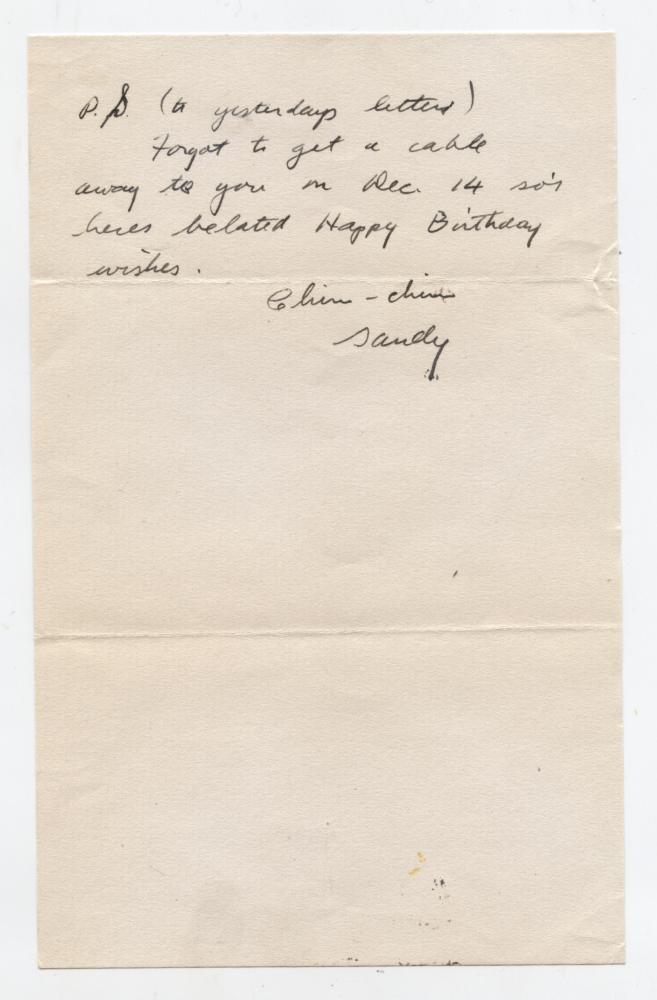 P.S. (to yesterdays letter)
Forgot to get a cable
away to you on Dec. 14 so's
heres belated Happy Birthday
wishes.
Chin-chin
Sandy